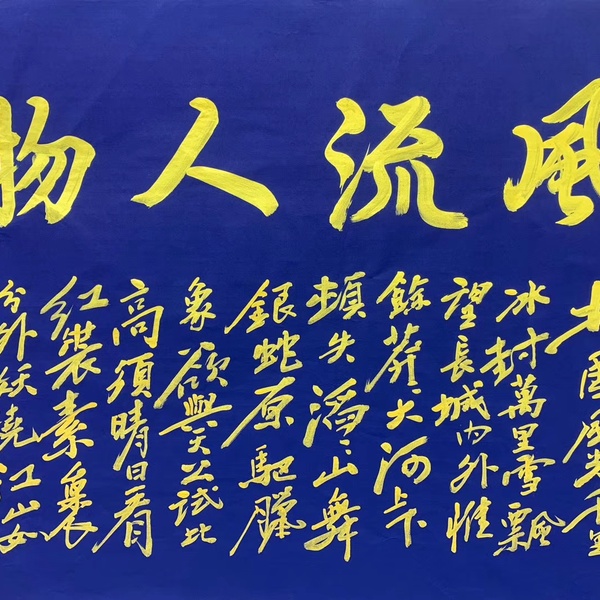 風流人物
北國風光千里
冰封萬里雪飄
望長城内外惟
餘莽々大河上下
頓失滔々山舞
銀蛇原馳臘
象欲與天公試比
高須晴日看
紅裝素裹
分外妖嬈江山如